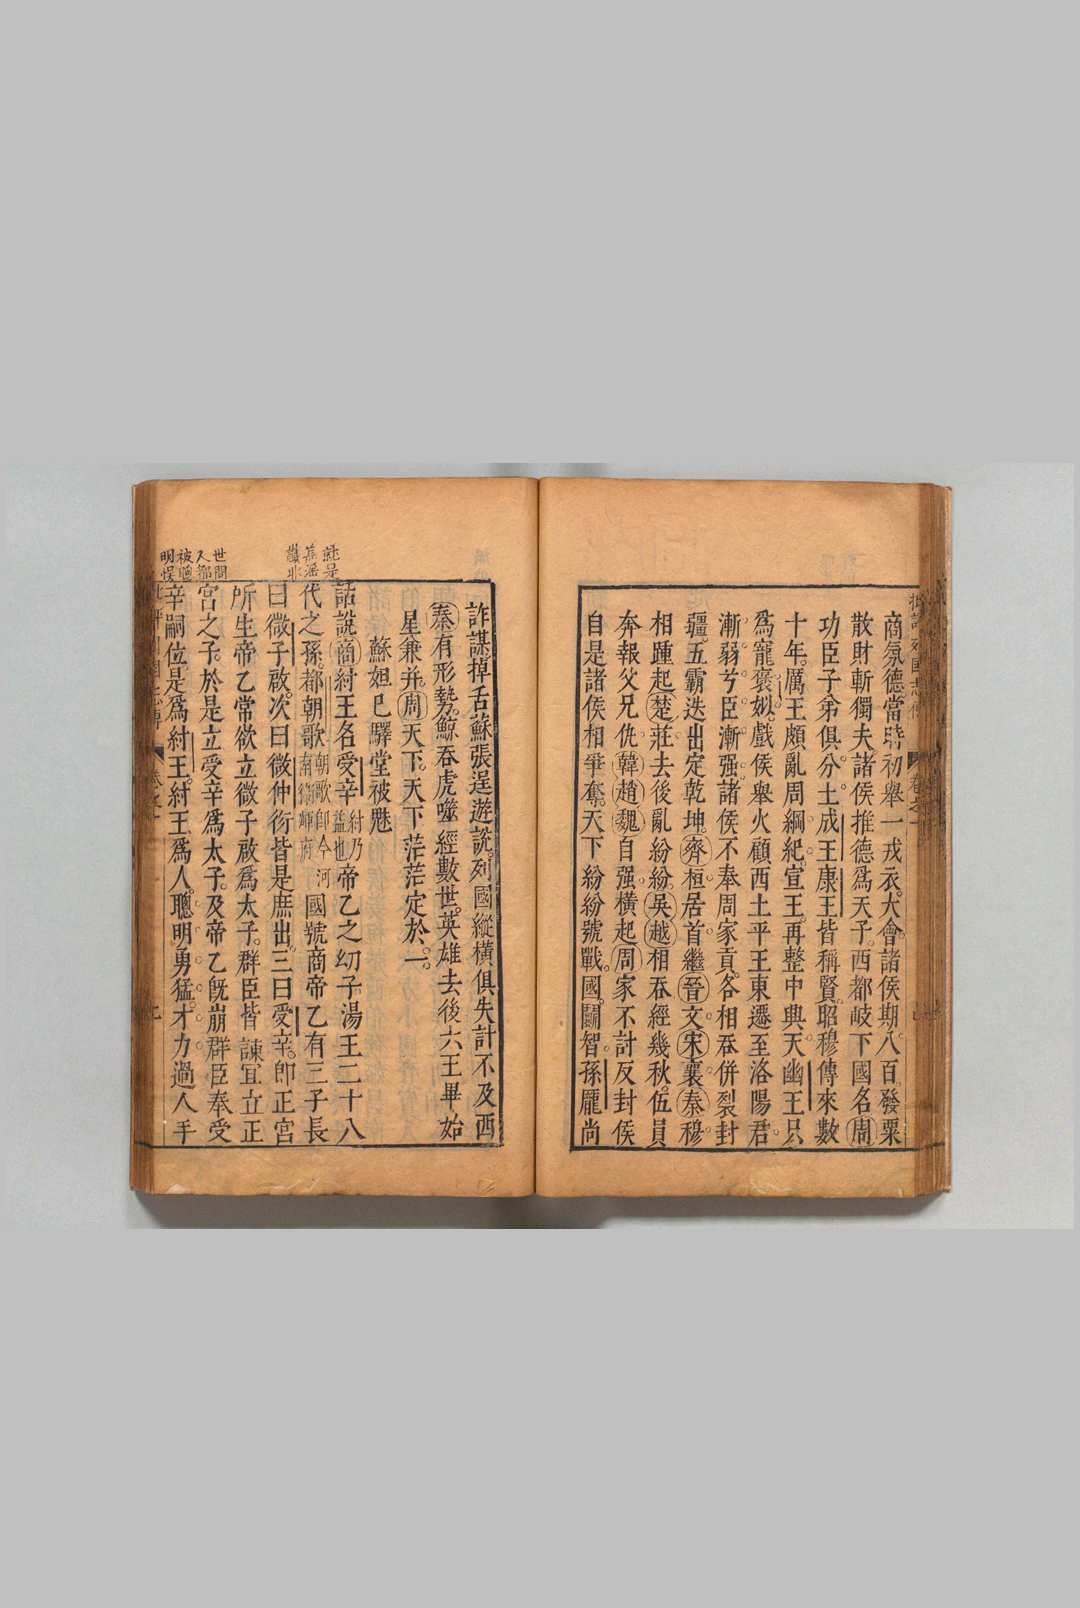 商氛德當時初舉一戎衣大會諸侯期八百發粟
散財斬獨夫諸侯推德爲天子西都岐下國名周
功臣子弟俱分土成王康王皆稱賢昭穆傳來數
十年厲王頗亂周綱紀宣王再整中興天幽王只
爲寵褒姒戲侯舉火顧西土平王東遷至洛陽君
漸弱兮臣漸强諸侯不奉周家貢各相吞併裂封
疆五霸迭出定乾坤齊桓居首繼晉文宋襄秦穆
相踵起楚莊去後亂紛紛吳越相吞經幾秋伍員
奔報父兄仇韓趙魏自强橫起周家不討反封侯
自是諸侯相爭奪天下紛紛號戰國鬭智孫龐尚
詐謀掉舌蘇張逞遊說列國縱橫俱失計不及西
秦有形勢鯨吞虎噬經數世英雄去後六王畢始
星兼并周天下天下茫茫定於一
蘇妲已驛堂被魅
話說商紂王名受辛紂乃謚也帝乙之幼子湯王二十八
代之孫都朝歌朝歌卽今河南衛輝府國號商帝乙有三子長
曰微子啟次曰微仲衍皆是庶出三曰受辛卽正宮
所生帝乙常欲立微子啟爲太子群臣皆諫宜立正
宮之子於是立受辛爲太子及帝乙旣崩群臣奉受
辛嗣位是爲紂王紂王爲人聰明勇猛才力過人手
就是
世間
人都
被聰
明悞
卷之一